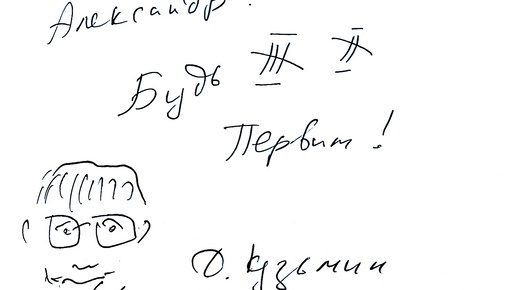 Александр!
Будь III II
Первым!
Ю. Кузьмин